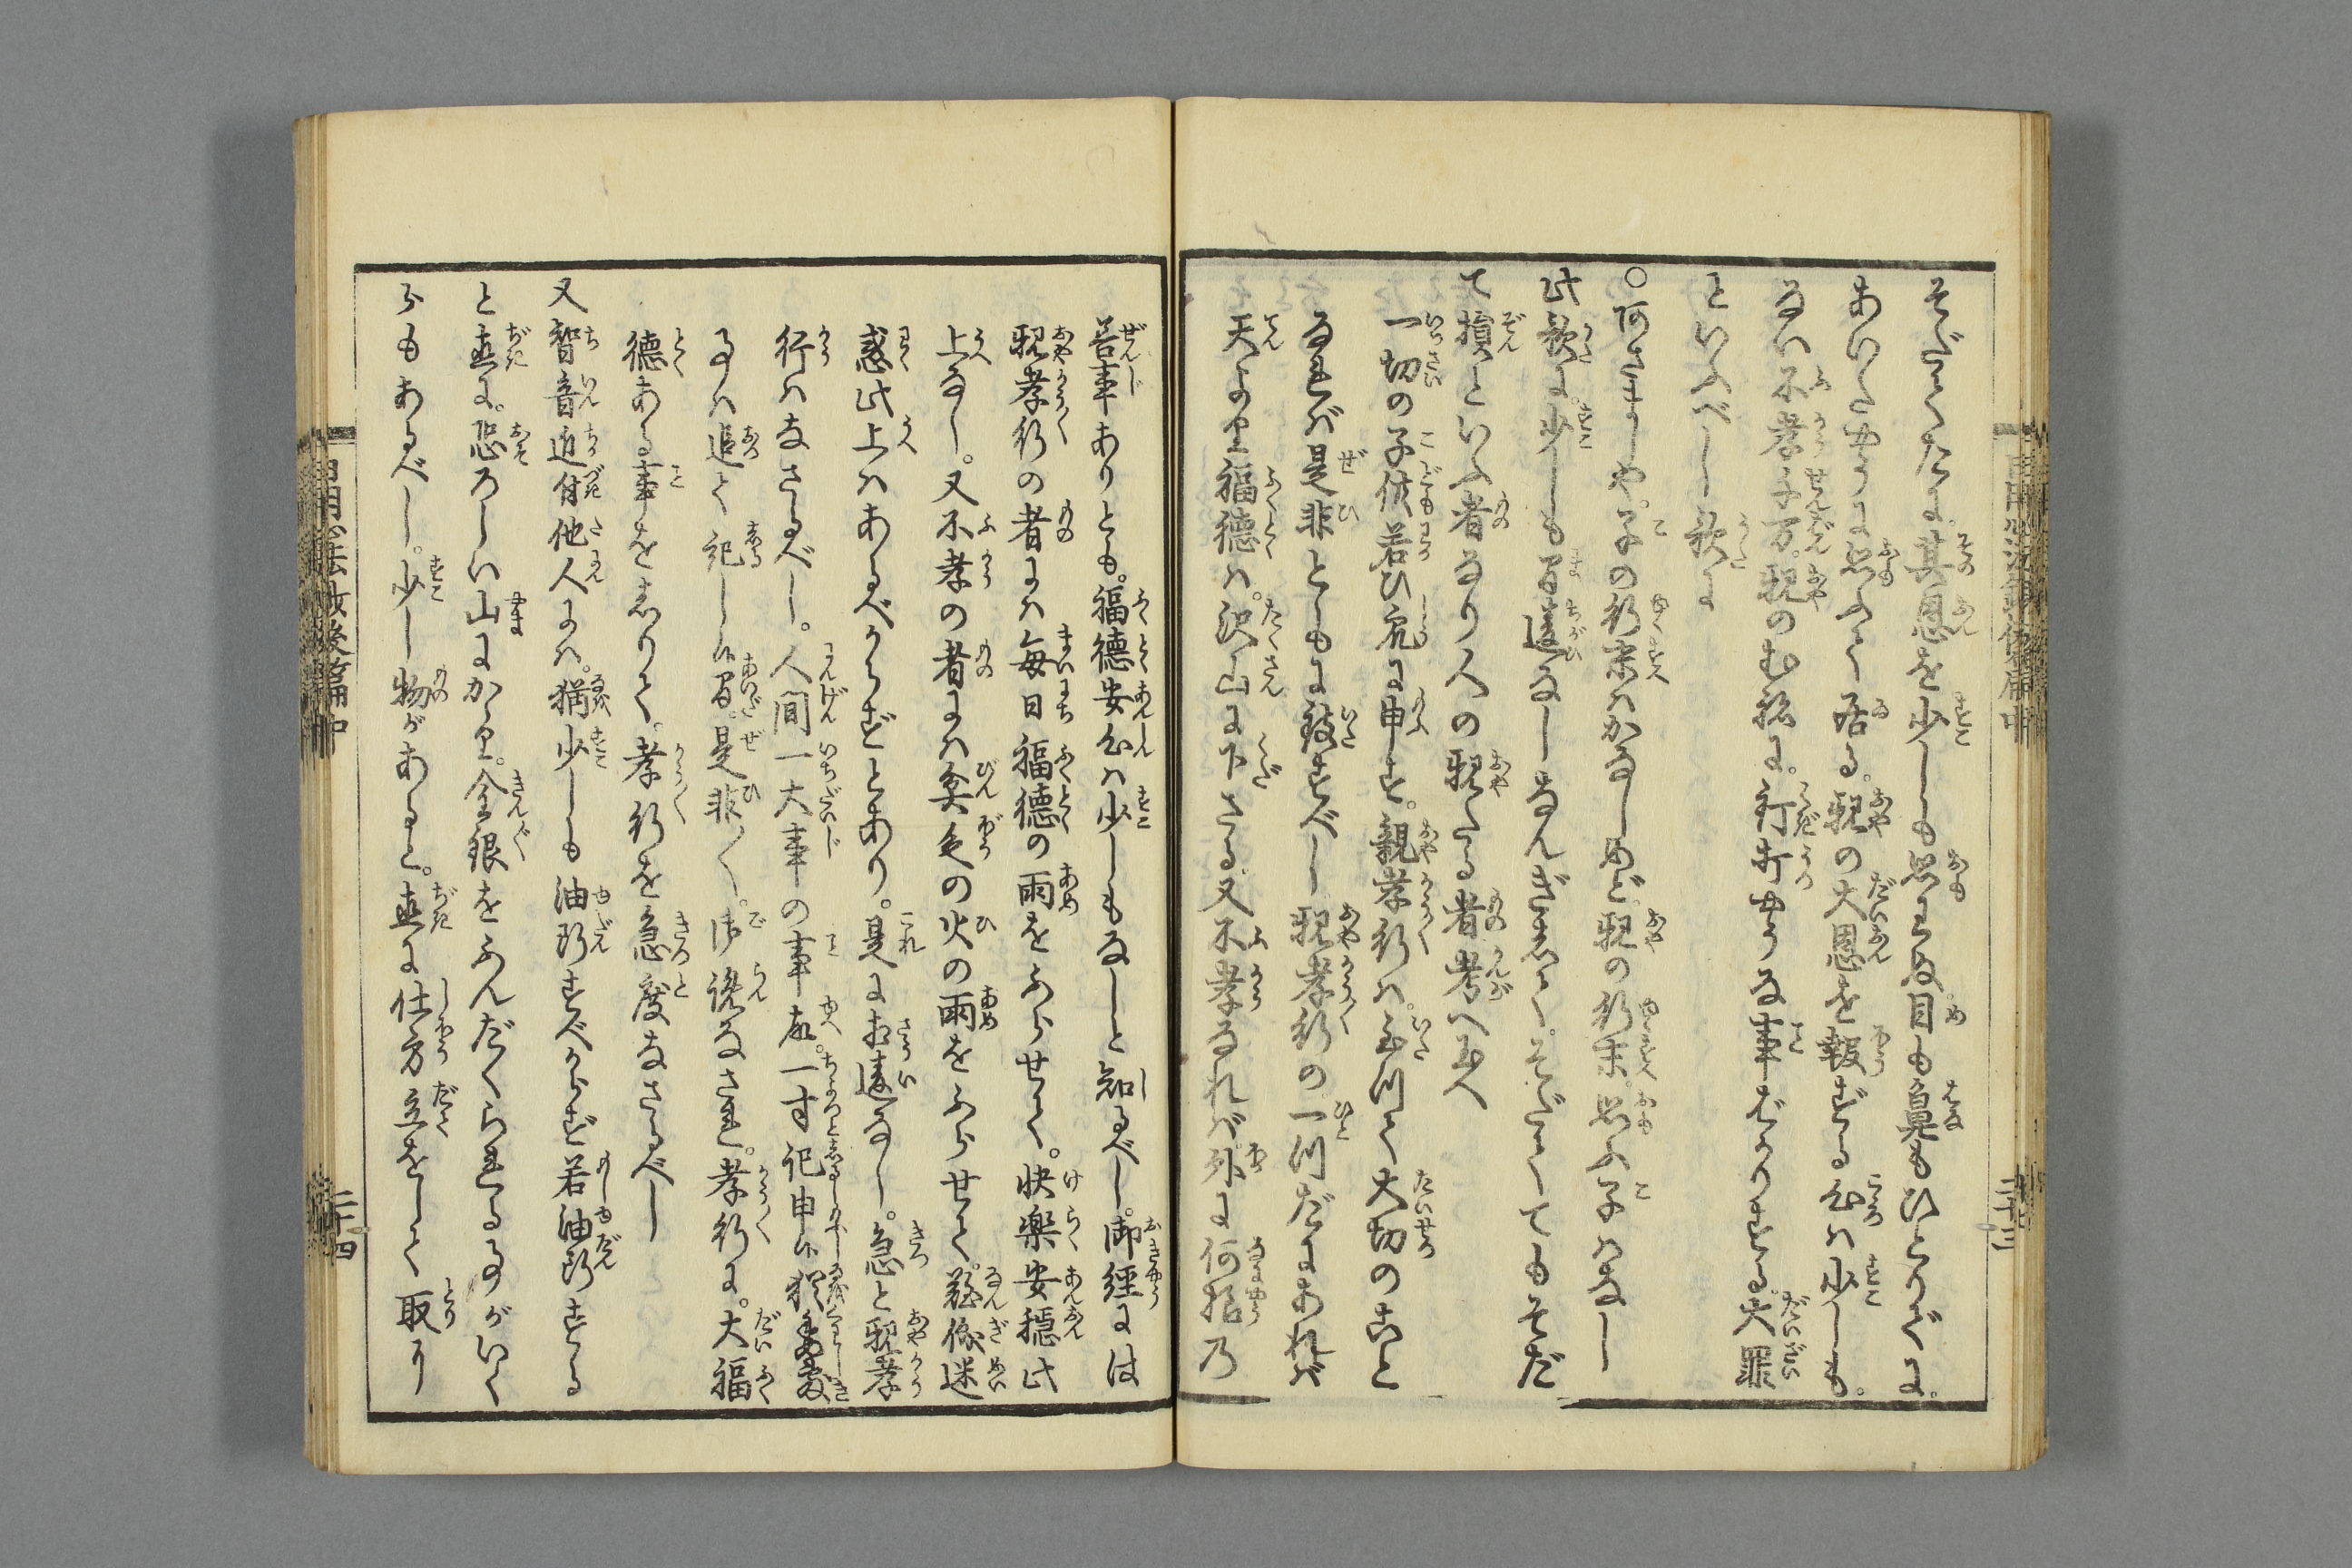 そだてくだに其恩を少しも思はぬ目も鼻もひとりでに
あいたやうに思ふて居る親の大恩を報ずる心は少しも
ない不孝千万親のむねに釘打やうな事ばかりする大罪
といふべし歌に
○何さましや子の行末はかなしめど親の行末思ふ子はなし
此歌に少しも間違なしなんぎをしてそだてゝもそだ
て損といふ者なり人の親たる者考へ玉へ
一切の子供若ひ衆に申す親孝行は至つて大切のこと
なれば是非ともに致すべし親孝行の一つだにあれば
天より福徳は沢山に下さる又不孝なれば外に何程の
善事ありとも福徳安心は少しもなしと知るべし御経には
親孝行の者には毎日福徳の雨をふらせて快楽安穏此
上なし又不孝の者には貧乏の火の雨をふらせて難儀迷
惑此上はあるべからずとあり是に相違なし急と親孝
行はなさるべし人間一大事の事故一寸記申候猶委敷
事は追て記し候間是非〱御覧なされ孝行に大福
徳ある事をしりて孝行を急度なさるべし
又智音近付他人には猶少しも油断すべからず若油断する
と直に恐ろしい山にかゝり金銀をふんだくられる事がいく
らもあるべし少し物があると直に仕方立をして取り
三十三
三十四